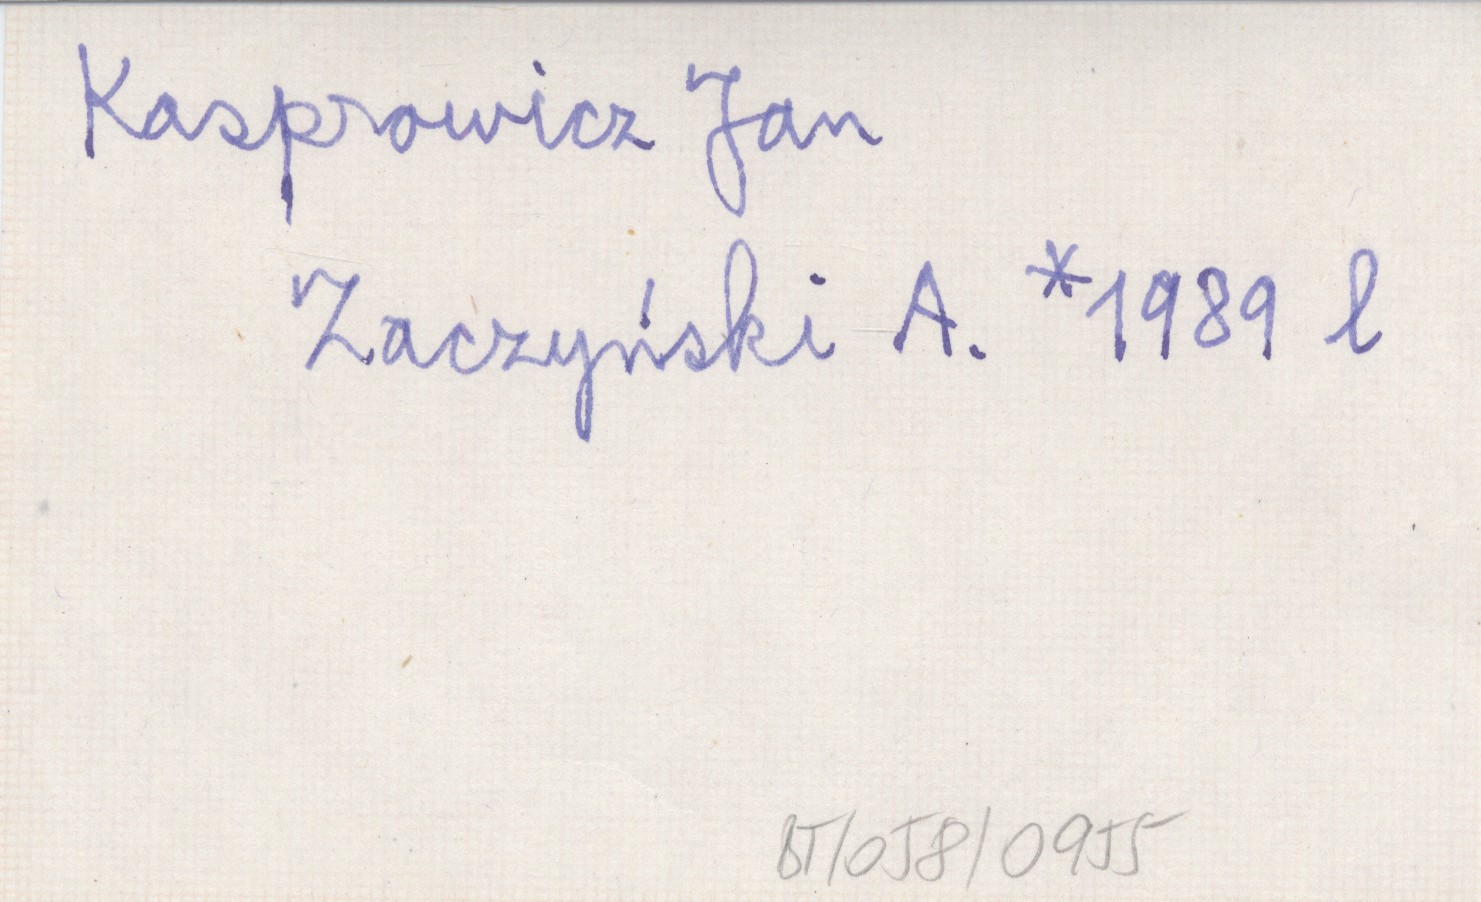 Kasprowicz Jan
Zaczyński A. *1989 l
BT/058/0955